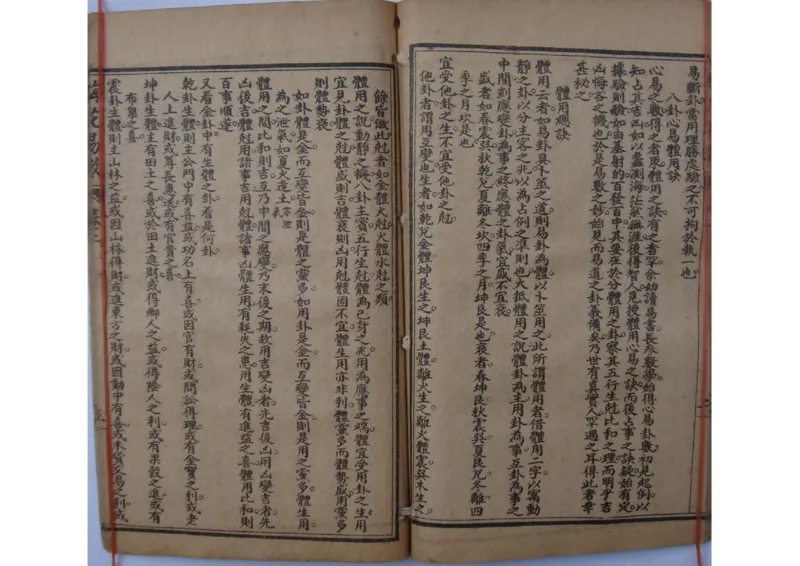 易斷卦當用理勝處驗之不可拘於執一也
八卦心易體用訣
心易之數得之者眾體用之訣有之者罕余幼讀易書長參數學始得心易卦數初見起例以
知占其吉凶如以蠡測海茫然無涯後得智人見授體用心易之訣而後占事之訣疑始有定
據驗則驗如由基射的百發百中其要在於分體用之卦察其五行生尅比和之理而明乎吉
凶悔吝之機也於是易數之妙始見而易道之卦義備矣乃世有真實人罕遇之耳得此者幸
甚秘之
體用總訣
體用二者如易卦具卜筮之道則易卦為體以卜筮用之此所謂體用者借體用二字以寓動
靜之卦以分主客之兆以為占例之準則也大抵體用之說體卦為主用卦為事互卦為事之
中間刻應變卦為事之終應體之卦氣宜盛不宜衰
盛者如春震巽秋乾兌夏離冬坎四季之月坤艮是也衰者春坤艮秋震巽夏艮兌冬離四
季之月坎是也
宜受他卦之生不宜受他卦之尅
他卦者謂用互變也生者如乾兌金體坤艮生之坤艮土體離火生之離火體震巽木生之
餘皆倣此尅者如金體火尅火體水尅之類
體用之說動靜之機八卦主賓五行生尅體為己身之兆用為應事之端體宜受用卦之生用
宜見卦體之尅體盛則吉體衰則凶用尅體固不宜體生用亦非利體黨多而體勢盛用黨多
則體勢衰
如卦體是金而互變皆金則是體之黨多如用卦是金而互變皆金則是用之黨多體生用
為之泄氣如夏火逢土亦泄氣
體用之間比和則吉互乃中間之應變乃末後之期故用吉變凶者先吉後凶用凶變吉者先
凶後吉體尅用諸事吉用尅體諸事凶體生用有耗失之患用生體有進益之喜體用比和則
百事順遂
又看全卦中有生體之卦看是何卦
乾卦生體則主公門中有喜益或功名上有喜或因官有財或問訟得理或有金寶之利或老
人上進財或尊長惠送或有官貴之喜
坤卦生體主有田土之喜或於田土進財或得鄉人之益或得陰人之利或有菓穀之進或有
布帛之喜
震卦生體則主山林之益或因山林得財或進東方之財或因動中有喜或木貨交易之利或